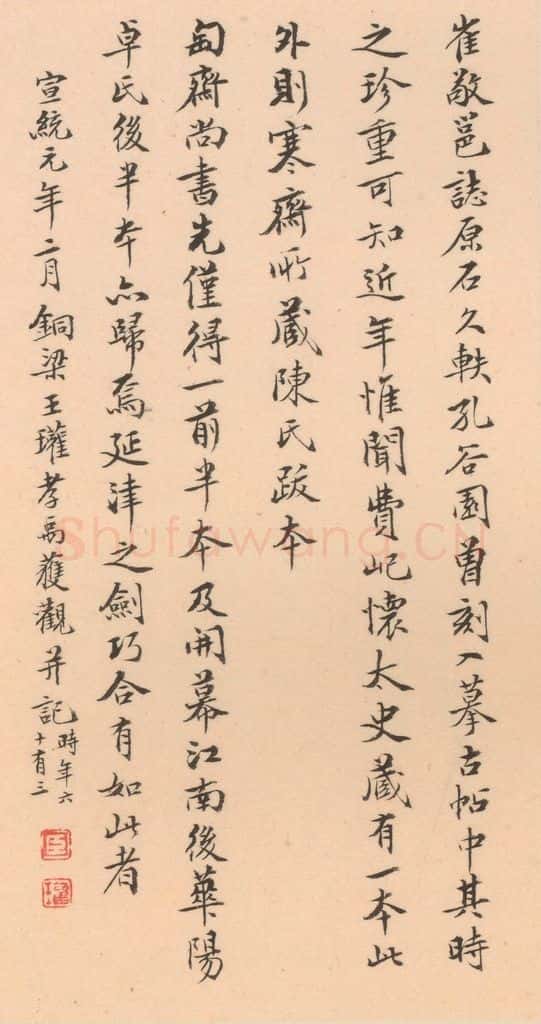 崔敬邕誌原石久軼孔谷園曾刻入摹古帖中其時
之珍重可知近年惟聞費屺懷太史藏有一本此
外則寒齋所藏陳氏跋本
匋齋尚書先僅得一前半本及開幕江南後華陽
卓氏後半本亦歸焉延津之劍巧合有如此者
宣統元年二月銅梁王瓘孝禹獲觀并記時年六
十有三
臣
瓘
Shufawang.CN